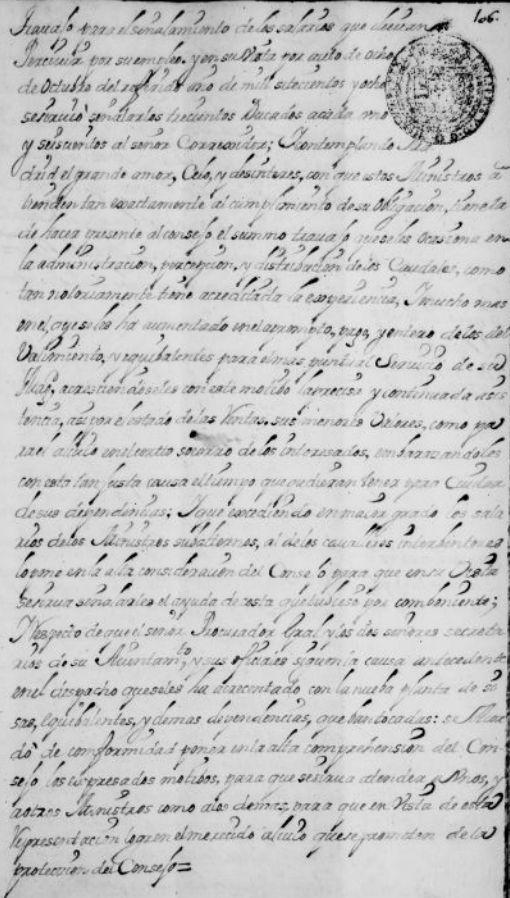 106.
travajo para el señalamiento de los salarios que devieran
Percivir por su empleo, y en su Vista por auto de ocho
de Octubre del referido año de mil setecientos y ocho
se sirvió señalarles trescientos Ducados a cada uno
y seiscientos al señor Correxidor; Y contemplando Ma
drid el grande amor, Celo, y desinteres, con que estos Ministros a
tienden tan exactamente al cumplimiento de su Obligacion, tiene la
de hacer presente al consejo el summo travajo que se les ocasiona en
la administracion, percepcion, y distribucion de los Caudales, como
tan notoriamente tiene acreditada la experiencia, Y mucho mas
en el que se les ha aumentado en el apromto, pago, y entero de los del
Valimiento, y equibalentes para el mas puntual Servicio de su
Magd, acresciendoseles con este motibo la precisa y continuada asis
tencia, asi por el estado de las Ventas, sus menores Valores, como pa
ra el alivio en el cortto socorro de los interesados, embarazandoles
con esta tan justa causa el tiempo que pudieran tener para Cuidar
de sus dependencias; Y que excediendo en maior grado los sala
rios de los Ministros subalternos, al de los cavalleros interbentores
lo pone en la alta consideracion del Consejo para que en su Vista
se sirva señalarles el ayuda de costa que tubiese por combeniente;
Y Respecto de que el señor Procurador Gral y los dos señores secreta
rios de su Ayuntamto, y sus oficiales siguen la causa antecedente
en el despacho que se les ha acrecentado con la nueba planta de si
sas, equibalentes, y demas dependencias, que ban tocadas: se Acor
dó de comformidad poner en la alta comprehension del Con
sejo los expresados motibos, para que se sirva atender a Unos, y
a otros Ministros como a los demas, para que en Vista de esta
Representacion logren el merecido alivio que se prometen de la
proteccion del Consejo=